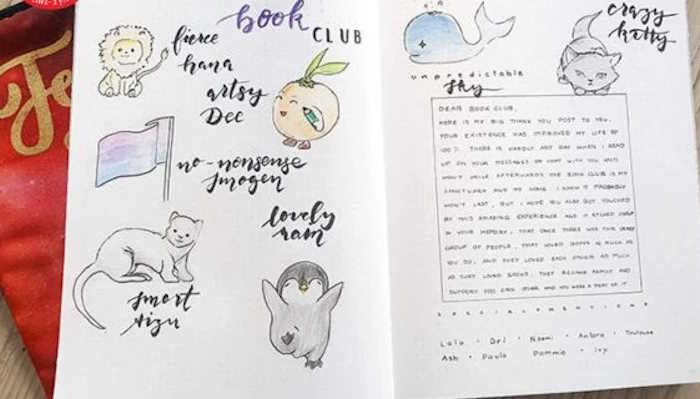 book CLUB
fierce
hana
artsy
Dec
no-nonsense
Imogen
lovely
ram
smart
unpredictable
sky
crazy
DEAR BOOK CLUB,
HERE IS MY BIG THANK YOU POST TO YOU.
YOUR EXISTENCE HAS IMPROVED MY LIFE BY
100%. THERE IS HARDLY ANY DAY WHEN I READ
UP ON YOUR MESSAGES OR CHAT WITH YOU AND
WON'T SMILE AFTERWARDS. THE BOOK CLUB IS MY
SANCTUARY AND MY HOME. I KNOW IT PROBABLY
WON'T LAST, BUT I HOPE YOU ALSO GOT TOUCHED
BY THIS AMAZING EXPERIENCE AND IT ETCHED
IN YOUR MEMORY, THAT ONCE THERE WAS THIS GREAT
GROUP OF PEOPLE, THAT LOVED BOOKS AS MUCH AS
YOU DO, AND THEY LOVED EACH OTHER AS MUCH
AS THEY LOVED BOOKS. THEY BECAME FAMILY AND
SUPPORT FOR EACH OTHER AND YOU WERE A PART OF IT.
SPECIAL MENTIONS
Lala · Dri · Naomi · Antara · Toulouse
Ash · Paula · Pammie · Ivy